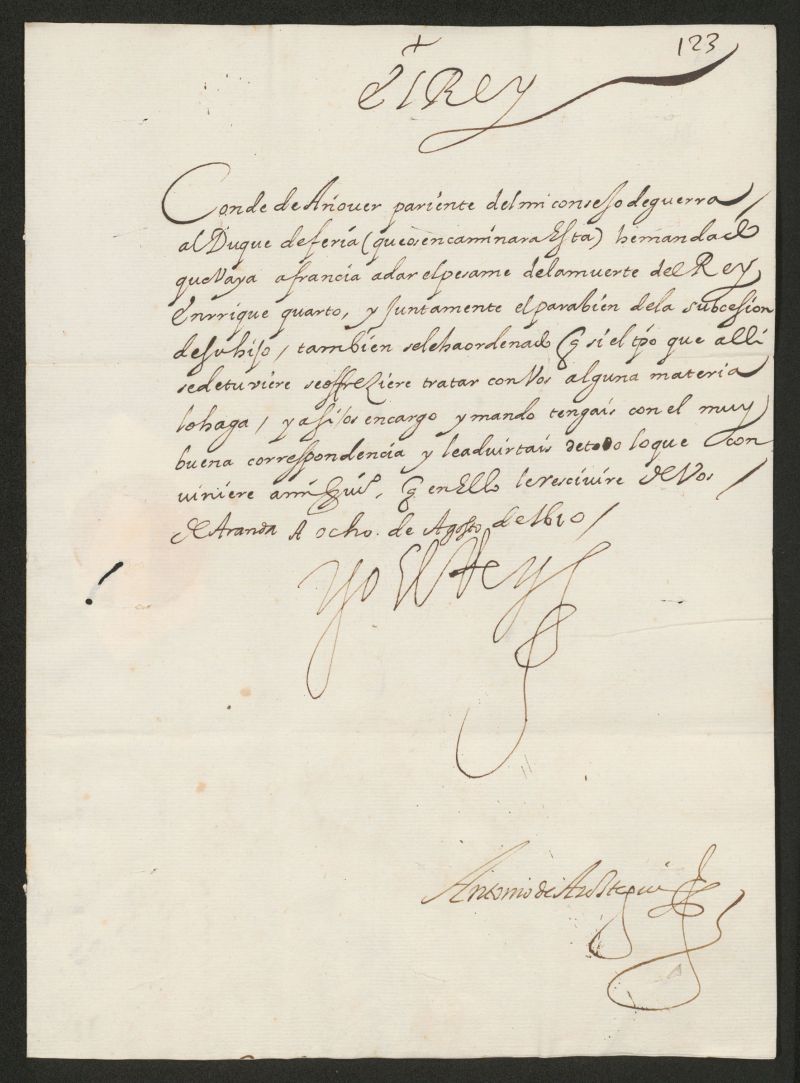 123
+
El Rey
Conde de Añover pariente del mi consejo de guerra /
al Duque de feria (que os encaminara Esta) he mandado
que Vaya a francia a dar el pesame de la muerte del Rey
Enrrique quarto, y Juntamente el parabien de la subcesion
de su hijo, tambien se le ha ordenado q̃ si el tp̃o que alli
se detuviere se offreziere tratar con Vos alguna materia
lo haga, y asi os encargo y mando tengais con el muy
buena correspondencia y le advirtais de todo lo que con
viniere a mi serui°, q̃ en Ello le rescivire de Vos /
de Aranda A ocho de Agosto de 1610 /
Yo El Rey
Antonio de Arostegui